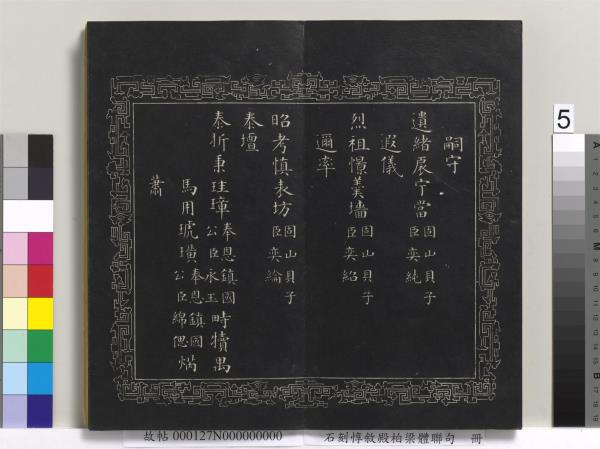 嗣守
遺緒扆宁當固山貝子臣奕純
遐儀
烈祖憬羹墻固山貝子臣奕紹
邇率
昭考慎表坊固山貝子臣奕綸
泰壇
泰折秉珪璋奉恩鎮國公臣永玉時犢禺
馬用琥璜公臣綿偲奉恩鎮國焫
蕭
故帖 000127N000000000 石刻惇敘殿柏梁體聯句 冊
5
A
B